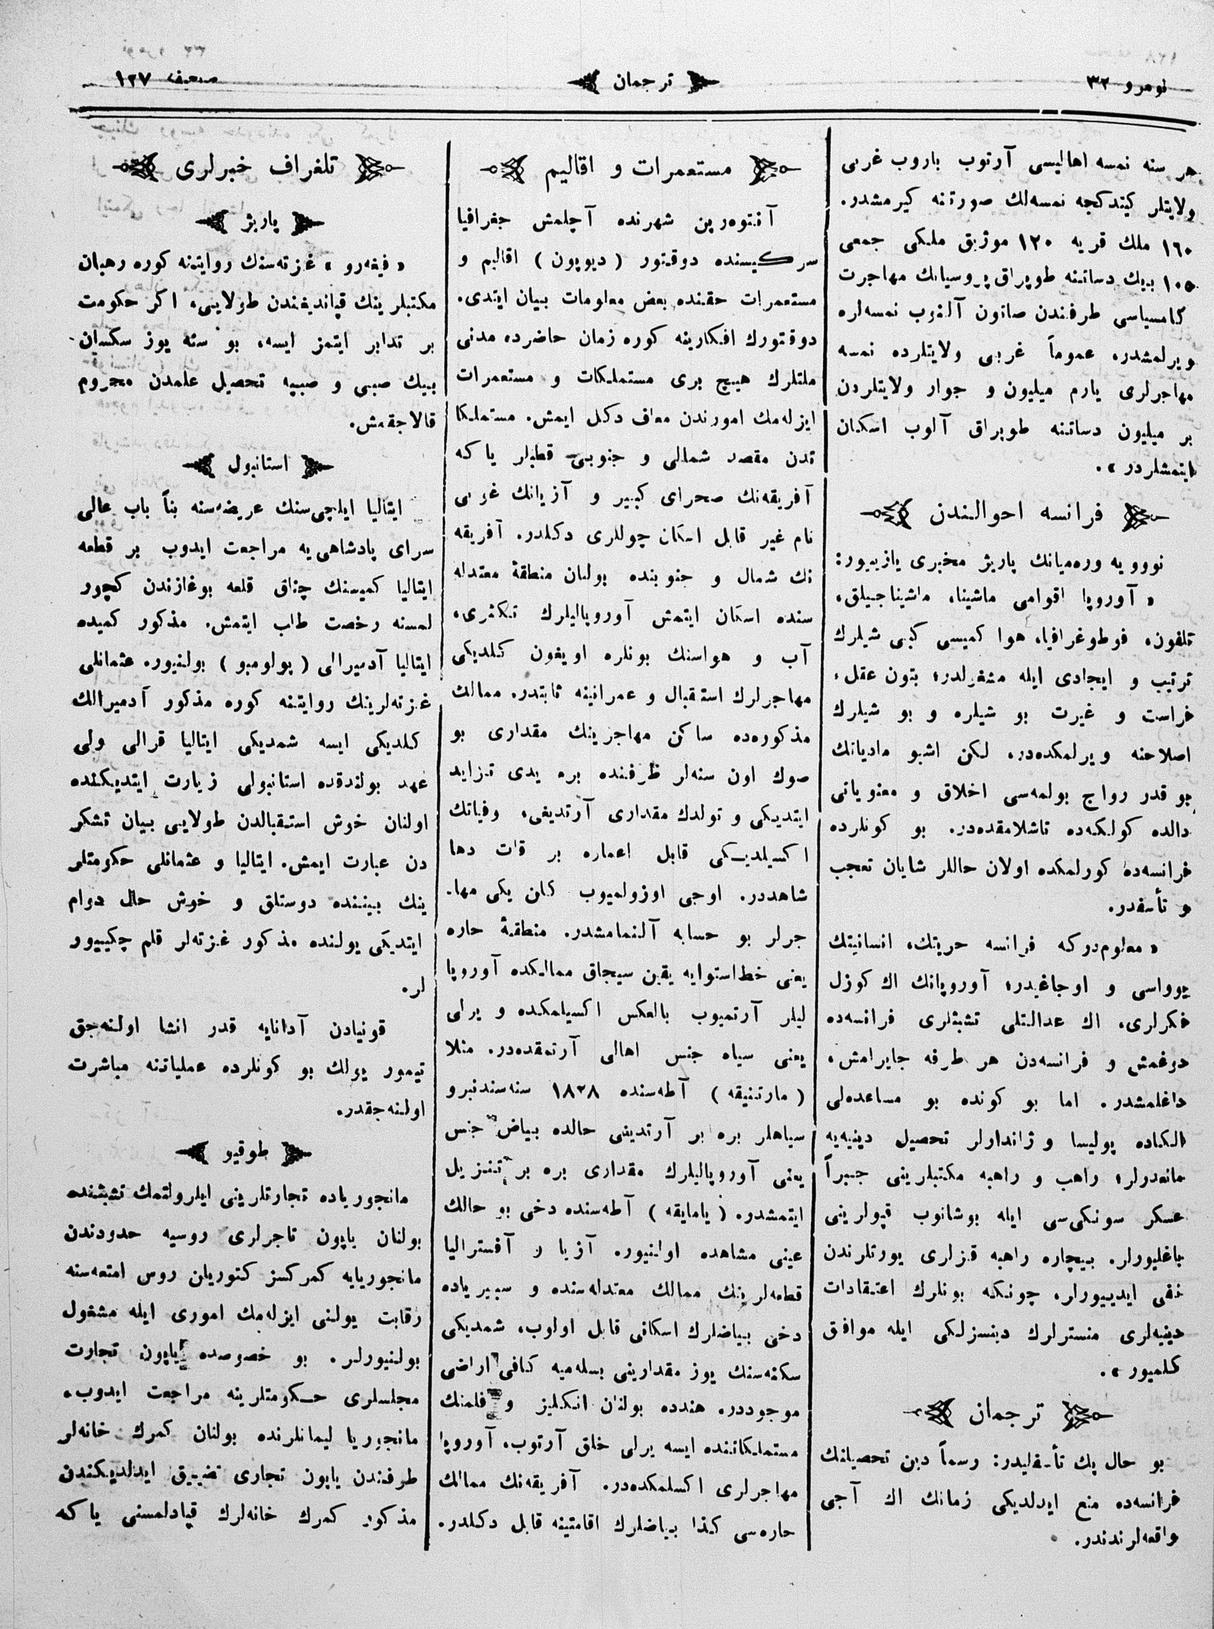 نومرو ٣٢
ترجمان
صحيفه ١٢٧
هر سنه نمسه اهاليسى آرتوب باروب غربى
ولايتلر كيتدكجه نمسه‌لك صورتنه كيرمشدر.
١٦٠ ملك قريه ١٢٠ موژيق ملكى جمعى
١٠٥ بيك دساتنه طوپراق پروسيانك مهاجرت
كامسياسى طرفندن صاتون آلنوب نمسه‌لره
ويرلمشدر. عموماً غربى ولايتلرده نمسه
مهاجرلرى يارم ميليون و جوار ولايتلردن
بر ميليون دساتنه طوپراق آلوب اسكان
ايتمشلردر».
فرانسه احوالندن
نوويه وره‌ميانك پاريژ مخبرى يازييور:
«آوروپا اقوامى ماشينا، ماشيناجيلق،
تلفون، فوطوغرافيا، هوا كميسى كبى شيلرك
ترتيب و ايجادى ايله مشغولدر؛ بتون عقل،
فراست و غيرت بو شيلره و بو شيلرك
اصلاحنه ويرلمكده‌در. لكن اشبو مادياتك
بو قدر رواج بولمه‌سى اخلاق و معنوياتى
دالده كولكه‌ده تاشلامقده‌در. بو كونلرده
فرانسه‌ده كورلمكده اولان حاللر شايان تعجب
و تأسفدر.
«معلوم‌دركه فرانسه حريتك، انسانيتك
يوواسى و اوجاغيدر؛ آوروپانك اك كوزل
فكرلرى، اك عدالتلى تشبثلرى فرانسه‌ده
دوغمش و فرانسه‌دن هر طرفه جايرامش،
داغلمشدر. اما بو كونده بو مساعده‌لى
الكاده پوليسا و ژاندارلر تحصيل دينيه‌يه
مانعدرلر؛ راهب و راهبه مكتبلرينى جبراً
عسكر سونكى‌سى ايله بوشانوب قپولرينى
باغليورلر. بيچاره راهبه قزلرى يورتلرندن
نفى ايدييورلر. چونكه بونلرك اعتقادات
دينيه‌لرى منسترلرك دينسزلكى ايله موافق
كلميور».
ترجمان
بو حال پك تأسفليدر: رسماً دين تحصيلنك
فرانسه‌ده منع ايدلديكى زمانك اك آجى
واقعه‌لرندندر.
مستعمرات و اقاليم
آنتوه‌رپن شهرنده آچلمش جغرافيا
سركيسنده دوقتور (ديوپون) اقاليم و
مستعمرات حقنده بعض معلومات بيان ايتدى.
دوقتورك افكارينه كوره زمان حاضرده مدنى
ملتلرك هيچ برى مستملكات و مستعمرات
ايزله‌مك امورندن معاف دكل ايمش. مستملكا
تدن مقصد شمالى و جنوبى قطبلر ياكه
آفريقه‌نك صحراى كبير و آزيانك غربى
نام غير قابل اسكان چوللرى دكلدر. آفريقه
نك شمال و جنوبنده بولنان منطقۀ معتدله
سنده اسكان ايتمش آوروپاليلرك تكثرى،
آب و هواسنك بونلره اويغون كلديكى
مهاجرلرك استقبال و عمرانيته ثابتدر. ممالك
مذكوره‌ده ساكن مهاجرينك مقدارى بو
صوك اون سنه‌لر ظرفنده بره يدى تزايد
ايتديكى و تولدك مقدارى آرتديغى، وفياتك
اكسيلديكى قابل اعماره بر قات دها
شاهددر. اوجى اوزولميوب كلن يكى مها-
جرلر بو حسابه آلنمامشدر. منطقۀ حاره
يعنى خط‌استوايه يقين سيجاق ممالكده آوروپا
ليلر آرتميوب بالعكس اكسيلمكده و يرلى
يعنى سياه جنس اهالى آرتمقده‌در. مثلا
(مارتنيقه) آطه‌سنده ١٨٢٨ سنه‌سندنبرو
سياهلر بره بر آرتديغى حالده بياض جنس
يعنى آوروپاليلرك مقدارى بره بر تنزيل
ايتمشدر. (يامايقه) آطه‌سنده دخى بو حالك
عينى مشاهده اولنيور. آزيا و آفستراليا
قطعه‌لرينك ممالك معتدله‌سنده و سبيرياده
دخى بياضلرك اسكانى قابل اولوب، شمديكى
سكنه‌سنك يوز مقدارينى بسله‌ميه كافى اراضى
موجوددر. هندده بولنان انكليز و فلمنك
مستملكاتنده ايسه يرلى خلق آرتوب، آوروپا
مهاجرلرى اكسلمكده‌در. آفريقه‌نك ممالك
حاره‌سى كذا بياضلرك اقامتينه قابل دكلدر.
تلغراف خبرلرى
پاريژ
«فيغه‌رو» غزته‌سنك روايتنه كوره رهبان
مكتبلرينك قپانديغندن طولايى، اكر حكومت
بر تدابر ايتمز ايسه، بو سنه يوز سكسان
بيك صبى و صبيه تحصيل علمدن محروم
قالاجقمش.
استانبول
ايتاليا ايلچى‌سنك عريضه‌سنه بناً باب عالى
سراى پادشاهى‌يه مراجعت ايدوب بر قطعه
ايتاليا كميسنك چناق قلعه بوغازندن كچور
لمسنه رخصت طلب ايتمش. مذكور كميده
ايتاليا آدميرالى (پولومبو) بولنيور. عثمانلى
غزته‌لرينك روايتنه كوره مذكور آدميرالك
كلديكى ايسه شمديكى ايتاليا قرالى ولى
عهد بولندقده استانبولى زيارت ايتديكنده
اولنان خوش استقبالدن طولايى بيان تشكر
دن عبارت ايمش. ايتاليا و عثمانلى حكومتلر
ينك بيننده دوستلق و خوش حال دوام
ايتديكى يولنده مذكور غزته‌لر قلم چكييور
لر.
قونيادن آدانايه قدر انشا اولنه‌جق
تيمور يولك بو كونلرده عملياتنه مباشرت
اولنه‌جقدر.
طوقيو
مانجورياده تجارتلرينى ايلرولتمك تشبثنده
بولنان ياپون تاجرلرى روسيه حدودندن
مانجوريايه كمركسز كتوريلن روس امتعه‌سنه
رقابت يولنى ايزله‌مك امورى ايله مشغول
بولنيورلر. بو خصوصده ياپون تجارت
مجلسلرى حكومتلرينه مراجعت ايدوب،
مانجوريا ليمانلرنده بولنان كمرك خانه‌لر
طرفندن ياپون تجارى تضييق ايدلديكندن
مذكور كمرك خانه‌لرك قپادلمسنى ياكه